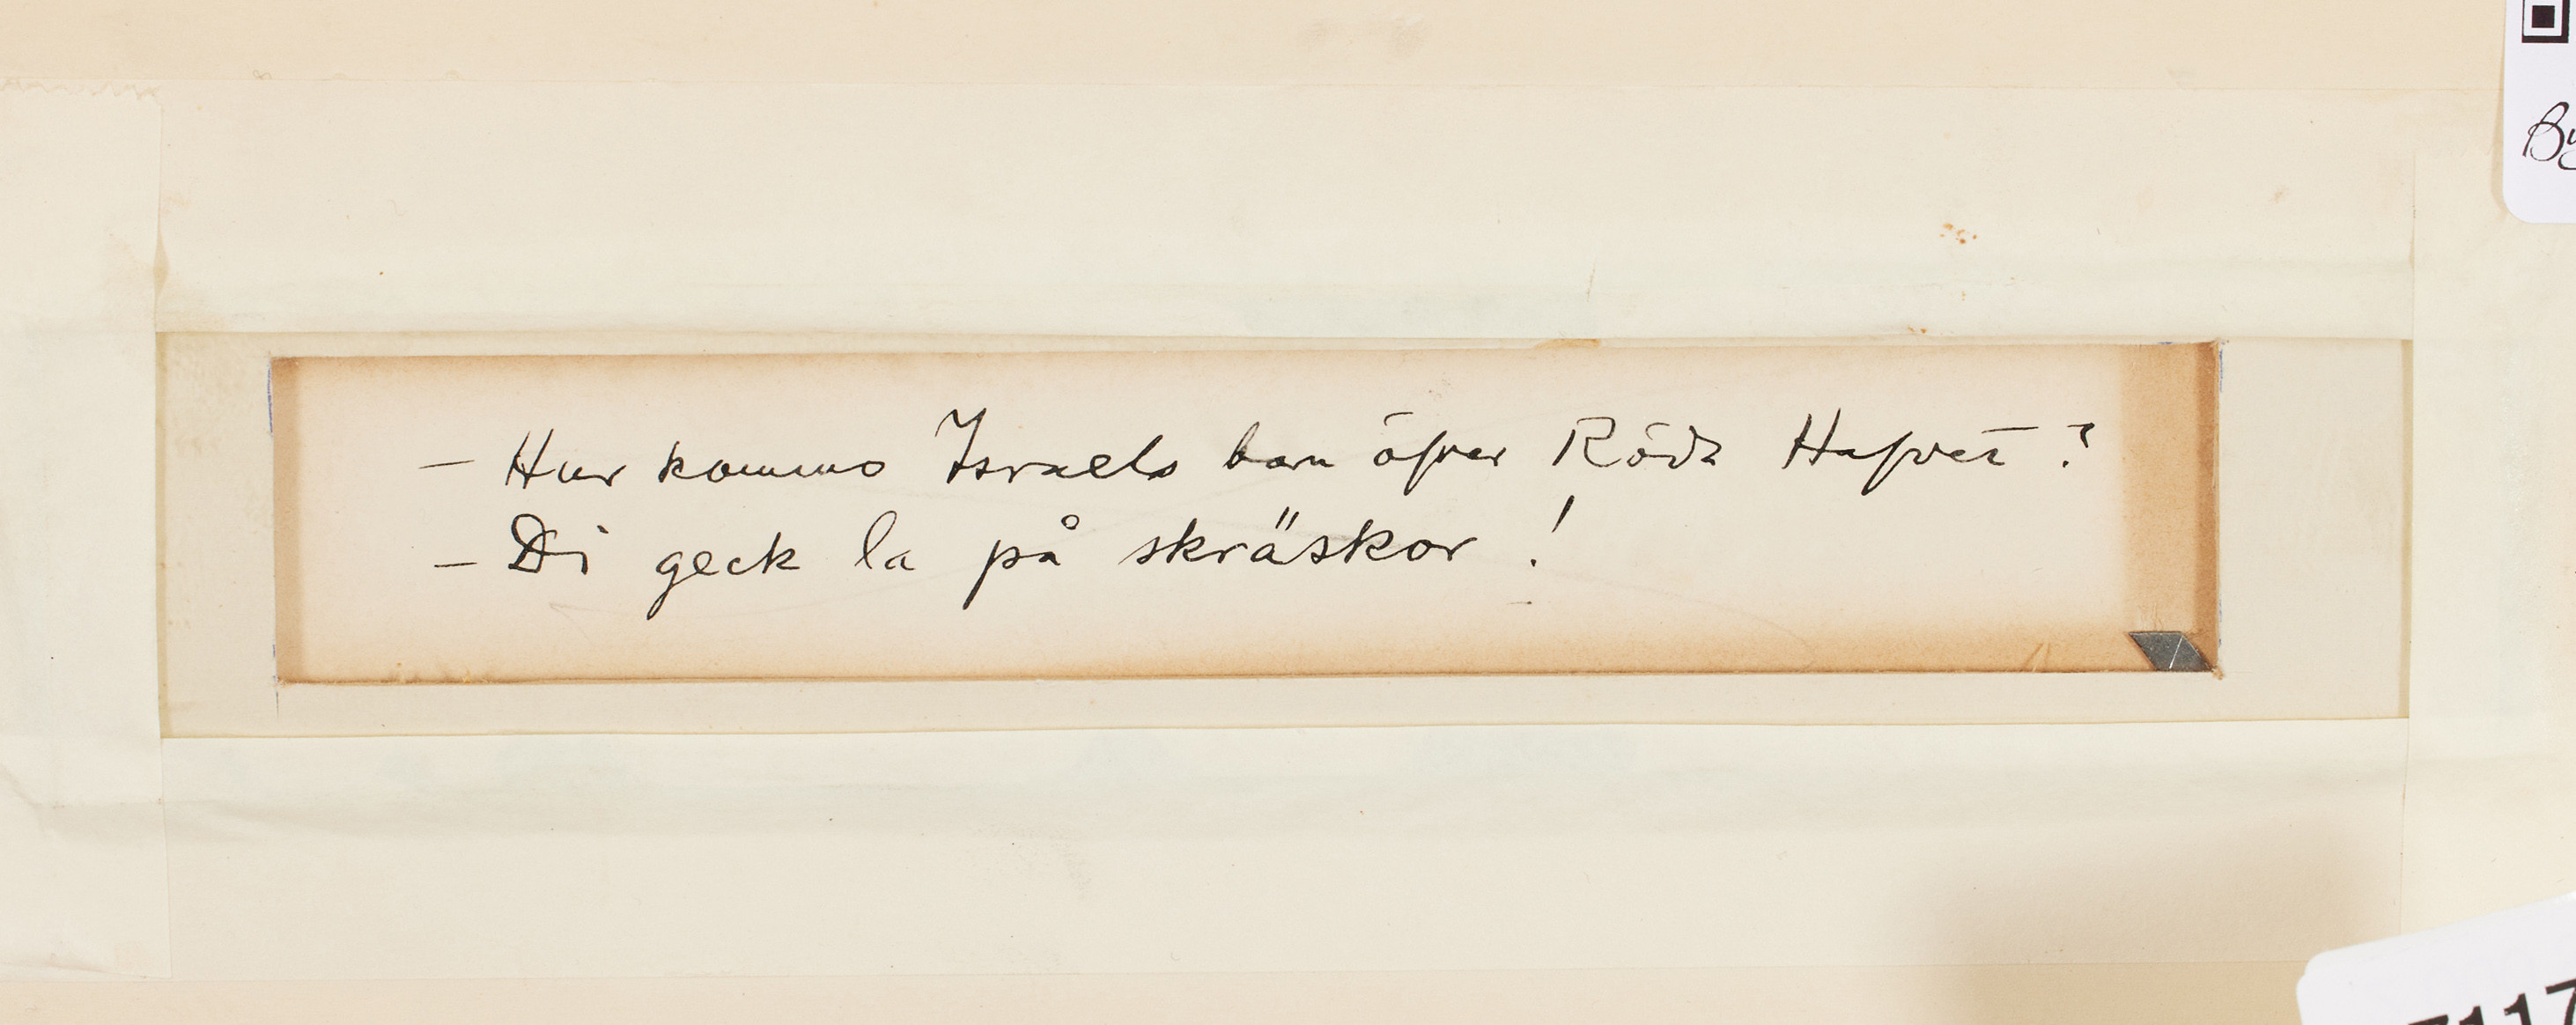 By
– Hur kommo Israels barn öfver Röda Hafvet ?
– Di geck la på skräskor !
7117